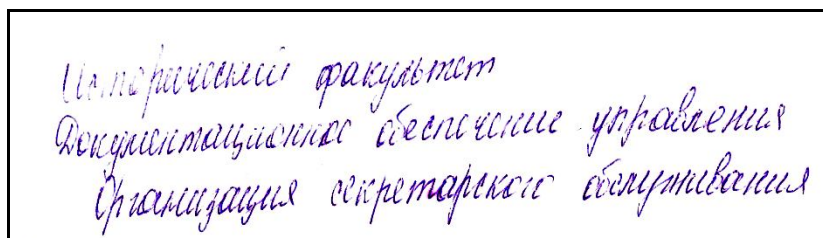 Исторический факультет
Документационное обеспечение управления
Организация секретарского обслуживания